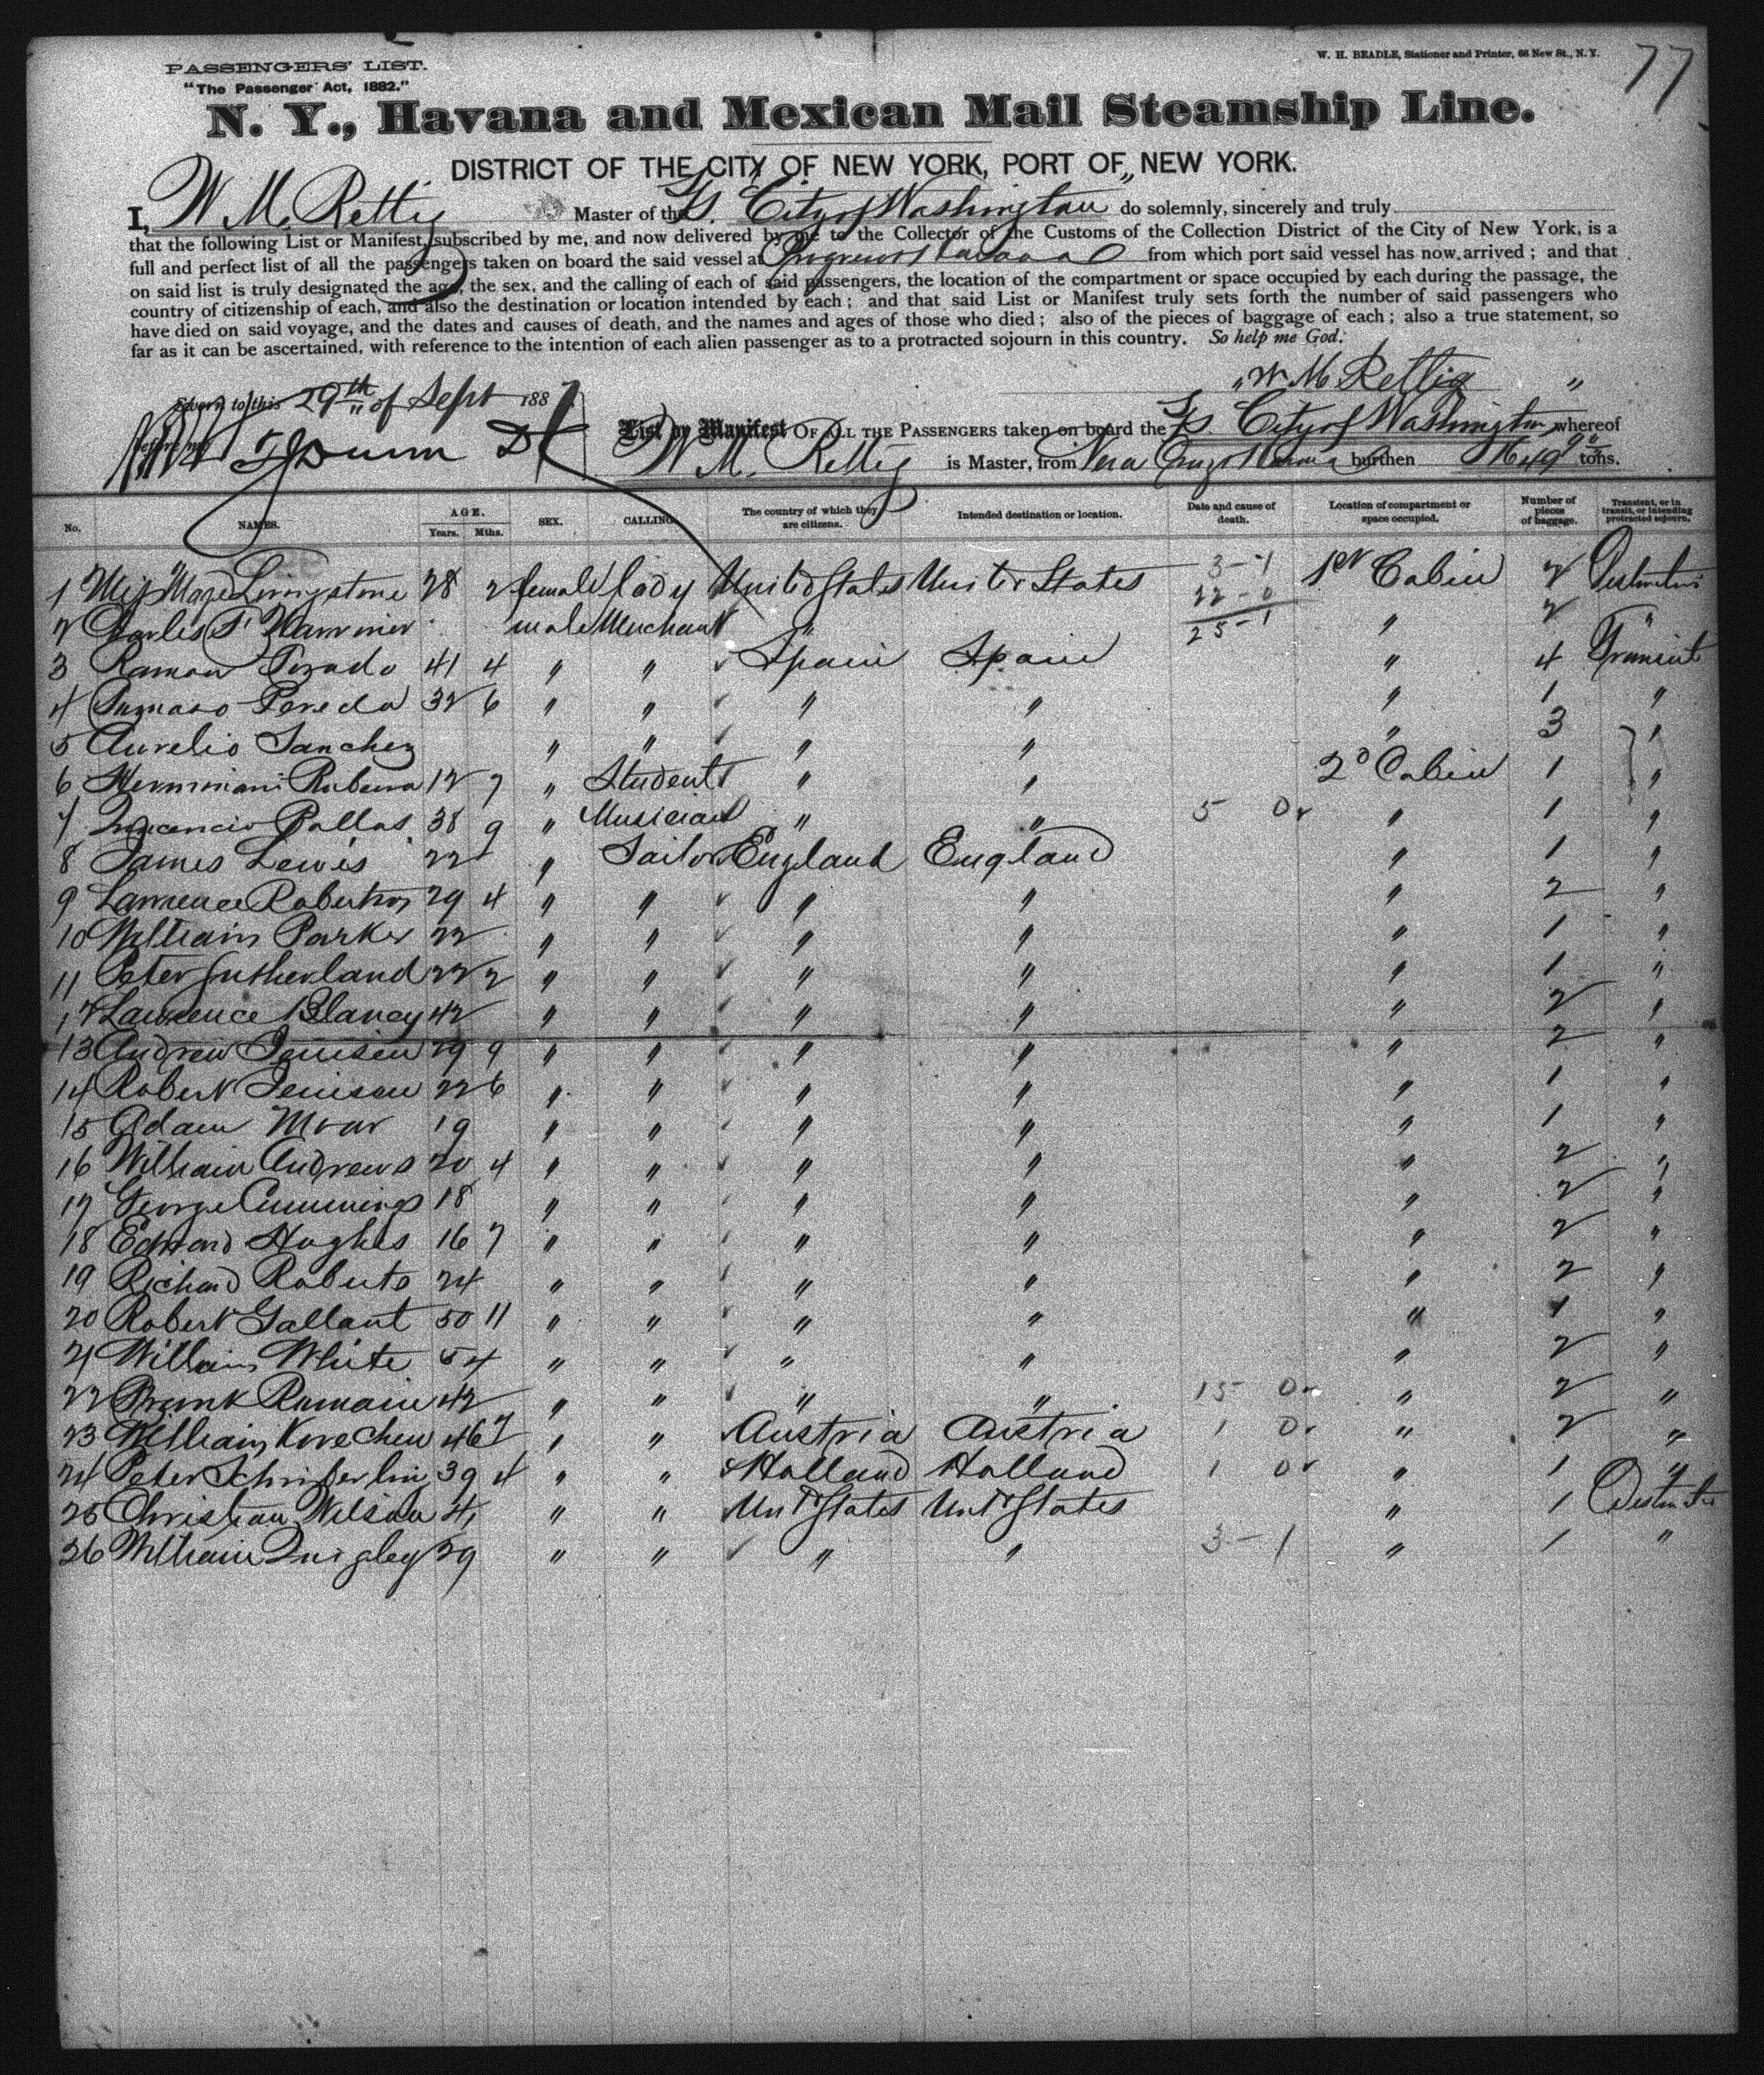 77
W. H. BEADLE, Stationer and Printer, 66 New St., N. Y.
PASSENGERS' LIST.
"The Passenger Act, 1882."
N. Y., Havana and Mexican Mail Steamship Line.
DISTRICT OF THE CITY OF NEW YORK, PORT OF „ NEW YORK.
I, W M. Rettig Master of the SS. City of Washington do solemnly, sincerely and truly
that the following List or Manifest, subscribed by me, and now delivered by me to the Collector of the Customs of the Collection District of the City of New York, is a
full and perfect list of all the passengers taken on board the said vessel at Progreso Havana from which port said vessel has now arrived; and that
on said list is truly designated the age, the sex, and the calling of each of said passengers, the location of the compartment or space occupied by each during the passage, the
country of citizenship of each, and also the destination or location intended by each; and that said List or Manifest truly sets forth the number of said passengers who
have died on said voyage, and the dates and causes of death, and the names and ages of those who died; also of the pieces of baggage of each; also a true statement, so
far as it can be ascertained, with reference to the intention of each alien passenger as to a protracted sojourn in this country. So help me God:
"W M Rettig "
Sworn to this 29th of Sept 1887
before me
List or Manifest OF ALL THE PASSENGERS taken on board the SS. City of Washington whereof
W M. Rettig is Master, from Vera Cruz Havana burthen 1649 tons.
No. NAMES. AGE. Years. Mths. SEX. CALLING. The country of which they are citizens. Intended destination or location. Date and cause of death. Location of compartment or space occupied. Number of pieces of baggage. Transient, or in transit, or intending protracted sojourn.
1 Miss Livingstone 28 2 female lady United States United States 3-1 1st Cabin 2
22-0
2 Charles male Merchant " 25-1 " 2 "
3 Ramon 41 4 " " Spain Spain " 4 Transient
4 Pereda 32 6 " " " " " 1 "
5 Aurelio Sanchez " " " " " 3 "
6 12 7 " Student " " 2d Cabin 1 "
7 38 9 " Musician " " 5 0r " 1 "
8 James Lewis 22 " Sailor England England " 1 "
9 Lawrence Robertson 29 4 " " " " " 2 "
10 William Parker 22 " " " " " 1 "
11 Peter Sutherland 22 2 " " " " " 1 "
12 Lawrence Blancy 42 " " " " " 2 "
13 Andrew Jenisen 29 9 " " " " " 2 "
14 Robert Jenison 22 6 " " " " " 1 "
15 Adam Moar 19 " " " " " 1 "
16 William Andrews 20 4 " " " " " 2 "
17 George Cummings 18 " " " " " 2 "
18 Edward Hughes 16 7 " " " " " 2 "
19 Richard Roberts 24 " " " " " 2 "
20 Robert Gallant 50 11 " " " " " 1 "
21 William White 54 " " " " " 2 "
22 Frank Romain 42 " " " " 15 0r " 2 "
23 William 46 7 " " Austria Austria 1 0r " 2 "
24 Peter 39 4 " " Holland Holland 1 0r " 1 "
25 Christian Wilson " " Unt States Unt States " 1
26 William Quigley 29 " " " " 3-1 " 1 "